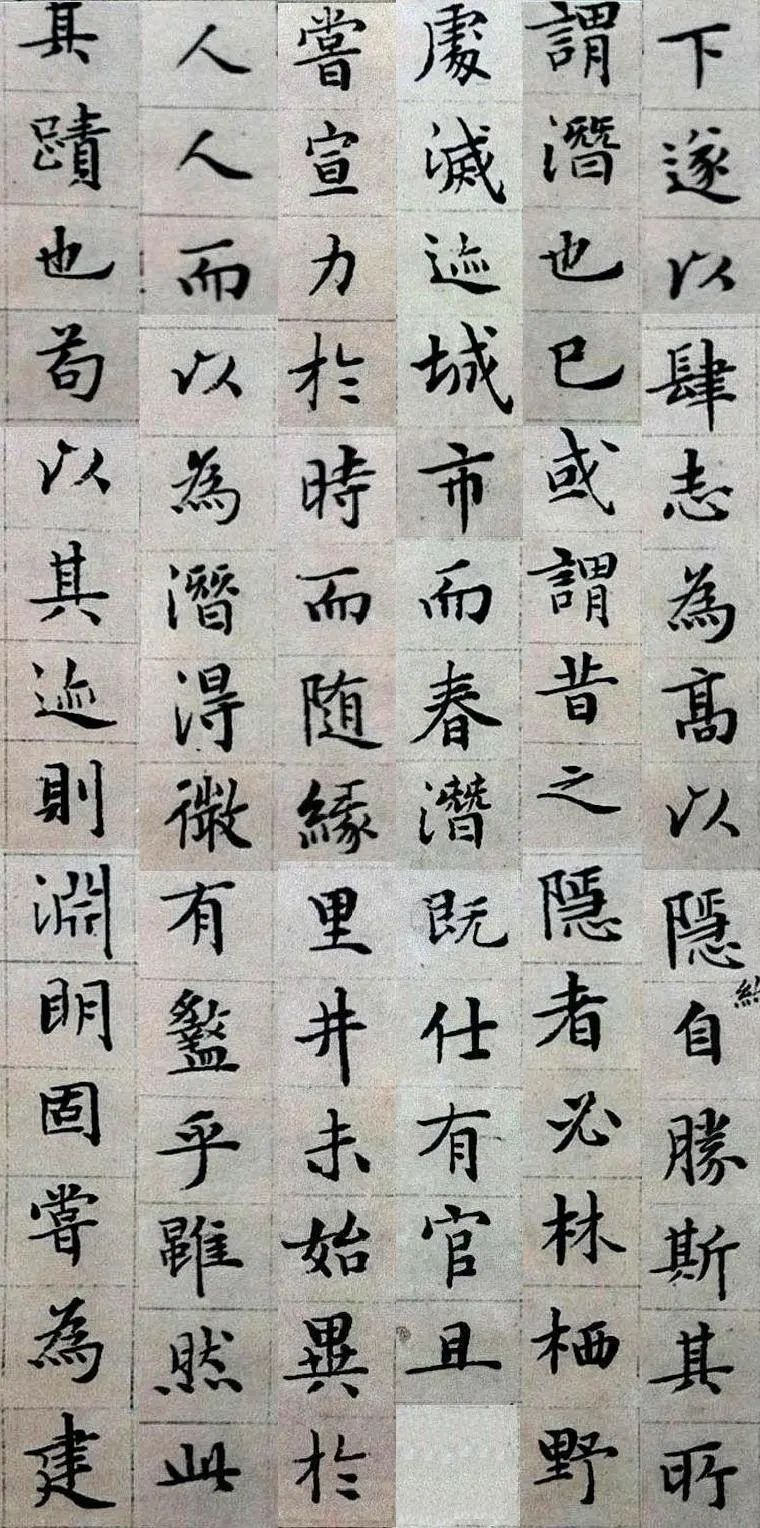 下遂以肆志為高以隱自勝斯其所
謂潛也已或謂昔之隱者必林栖野
處滅迹城市而春潛既仕有官且
嘗宣力於時而随緣里井未始異於
人人而以為潛得微有盭乎雖然此
其蹟也苟以其迹則淵明固嘗為建